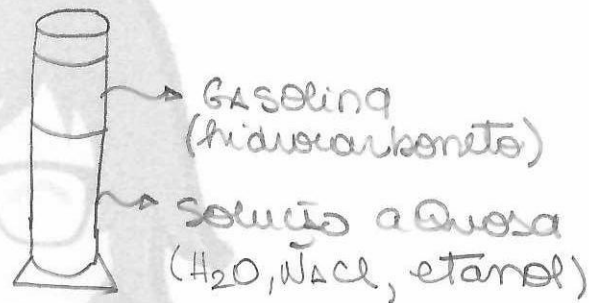 GASolina
(hidrocarboneto)
solução aQuosa
(H₂O, NaCl, etanol)